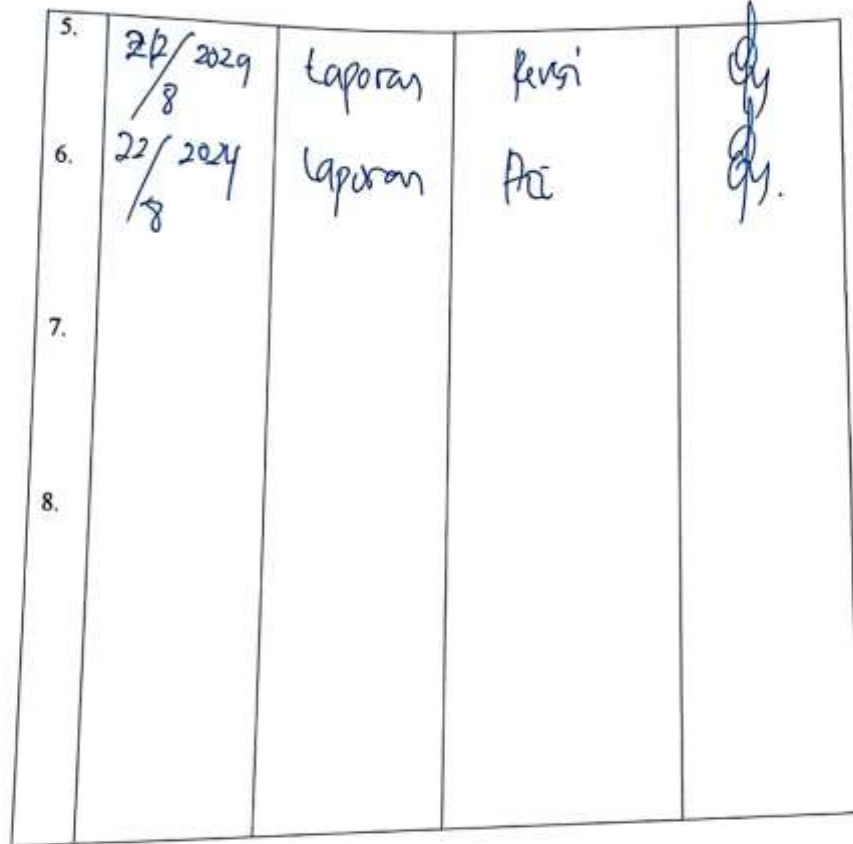 5. 2029 Laporan Revisi
/8
6. 22/ 2024 Laporan Acc
/8
7.
8.